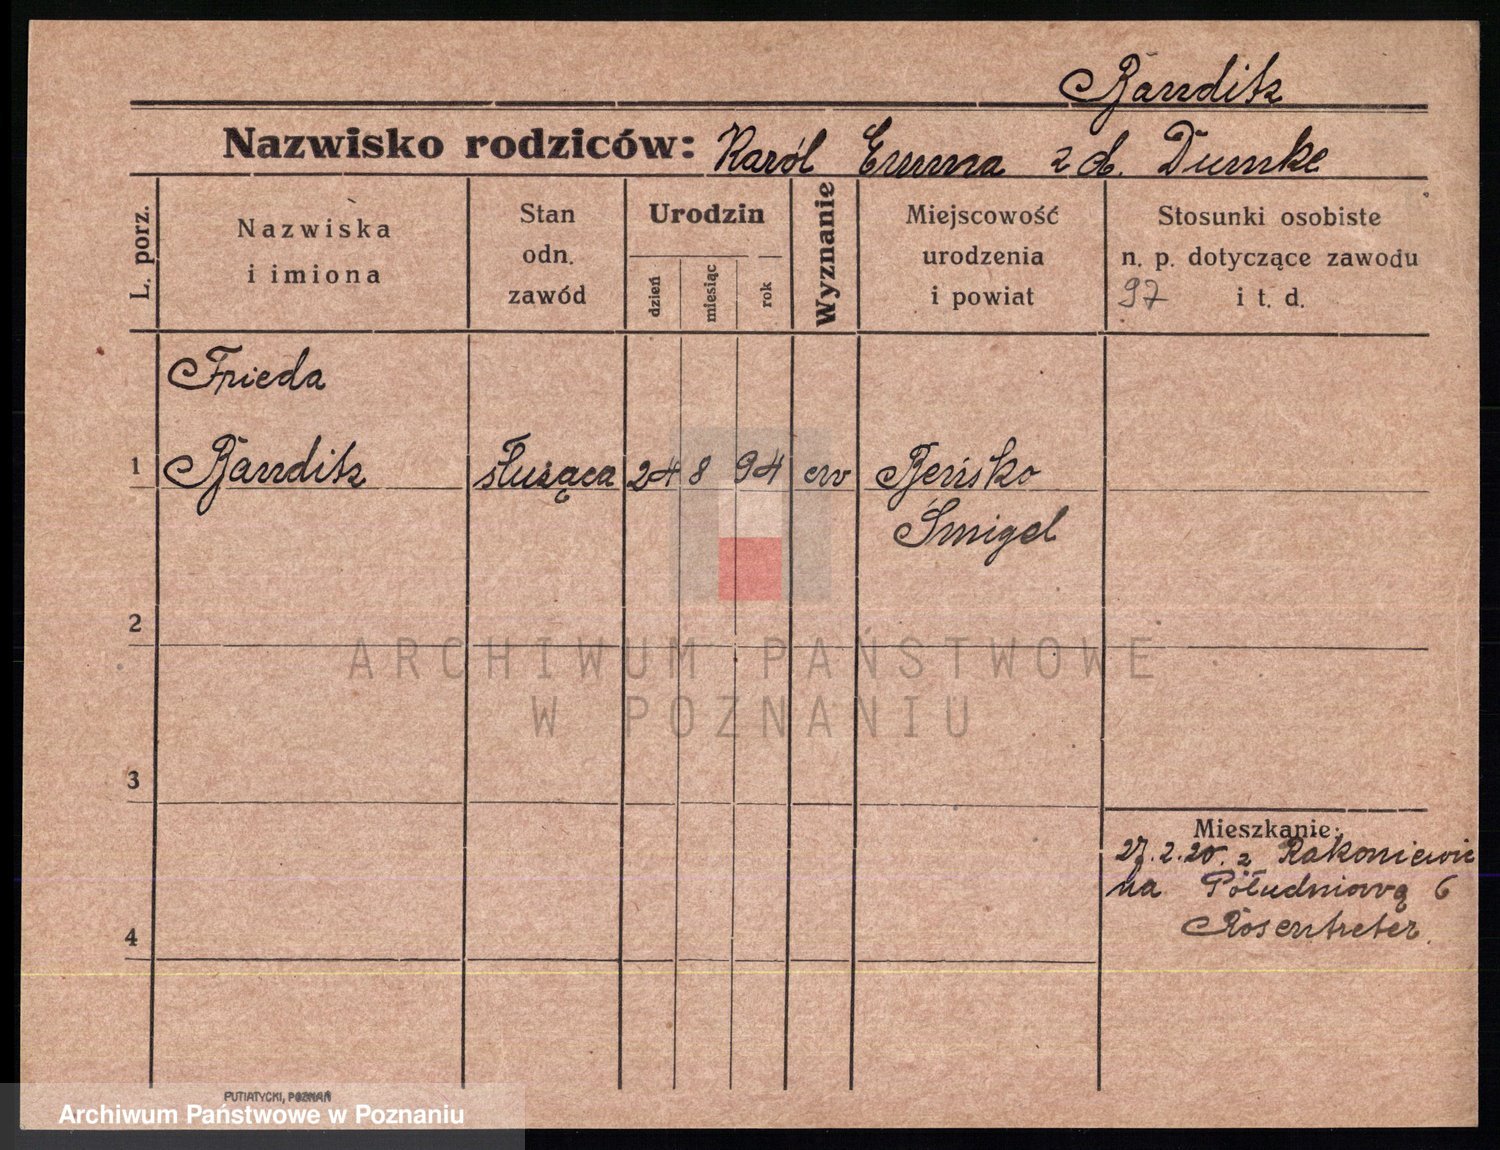 Banditz
Nazwisko rodziców: Karól Emma z d. Dumke
L. porz.
Nazwiska
i imiona
Stan
odn.
zawód
Urodzin
dzień
miesiąc
rok
Wyznanie
Miejscowość
urodzenia
i powiat
Stosunki osobiste
n. p. dotyczące zawodu
97 i t. d.
Frieda
1 Banditz służąca 24 8 94 ew
Śmigel
2
ARCHIWUM PAŃSTWOWE
W POZNANIU
3
Mieszkanie:
27.2.20. z Rakoniewic
4
na Południową 6
Rosentreter.
PUTIATYCKI, POZNAŃ
Archiwum Państwowe w Poznaniu